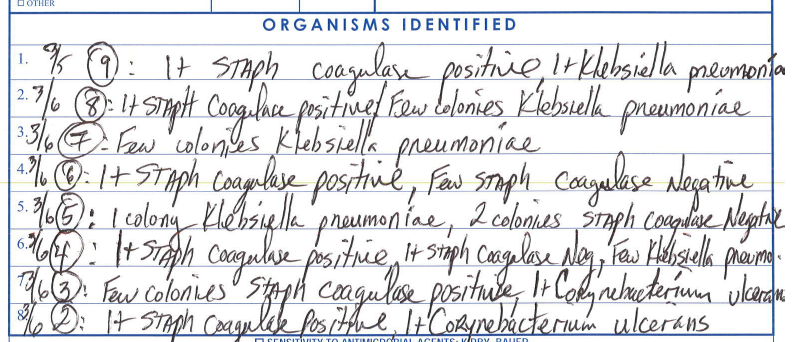 □ OTHER
ORGANISMS IDENTIFIED
1. 3/5 (9): 1+ STAph coagulase positive, 1+ Klebsiella pneumonia
2. 3/6 (8): 1+ STAPH Coagulace positive/ Few colonies Klebsiella pneumoniae
3. 3/6 (7)- Few colonies Klebsiella pneumoniae
4. 3/6 (6): 1+ STAph Coagulase positive, Few STAph Coagulase Negative
5. 3/6 (5): 1 colony Klebsiella pneumoniae, 2 colonies STAph coagulase Negative
6. 3/6 (4): 1+ STAph Coagulase positive, 1+ Staph Coagulase Neg, Few Klebsiella pneumo.
7. 3/6 (3): Few colonies STAph coagulase positive, 1+ Corynebacterium ulcerans
8. 3/6 (2): 1+ STAph Coagulase Positive, 1+ Corynebacterium ulcerans
□ SENSITIVITY TO ANTIMICROBIAL AGENTS: KIRBY BAUER